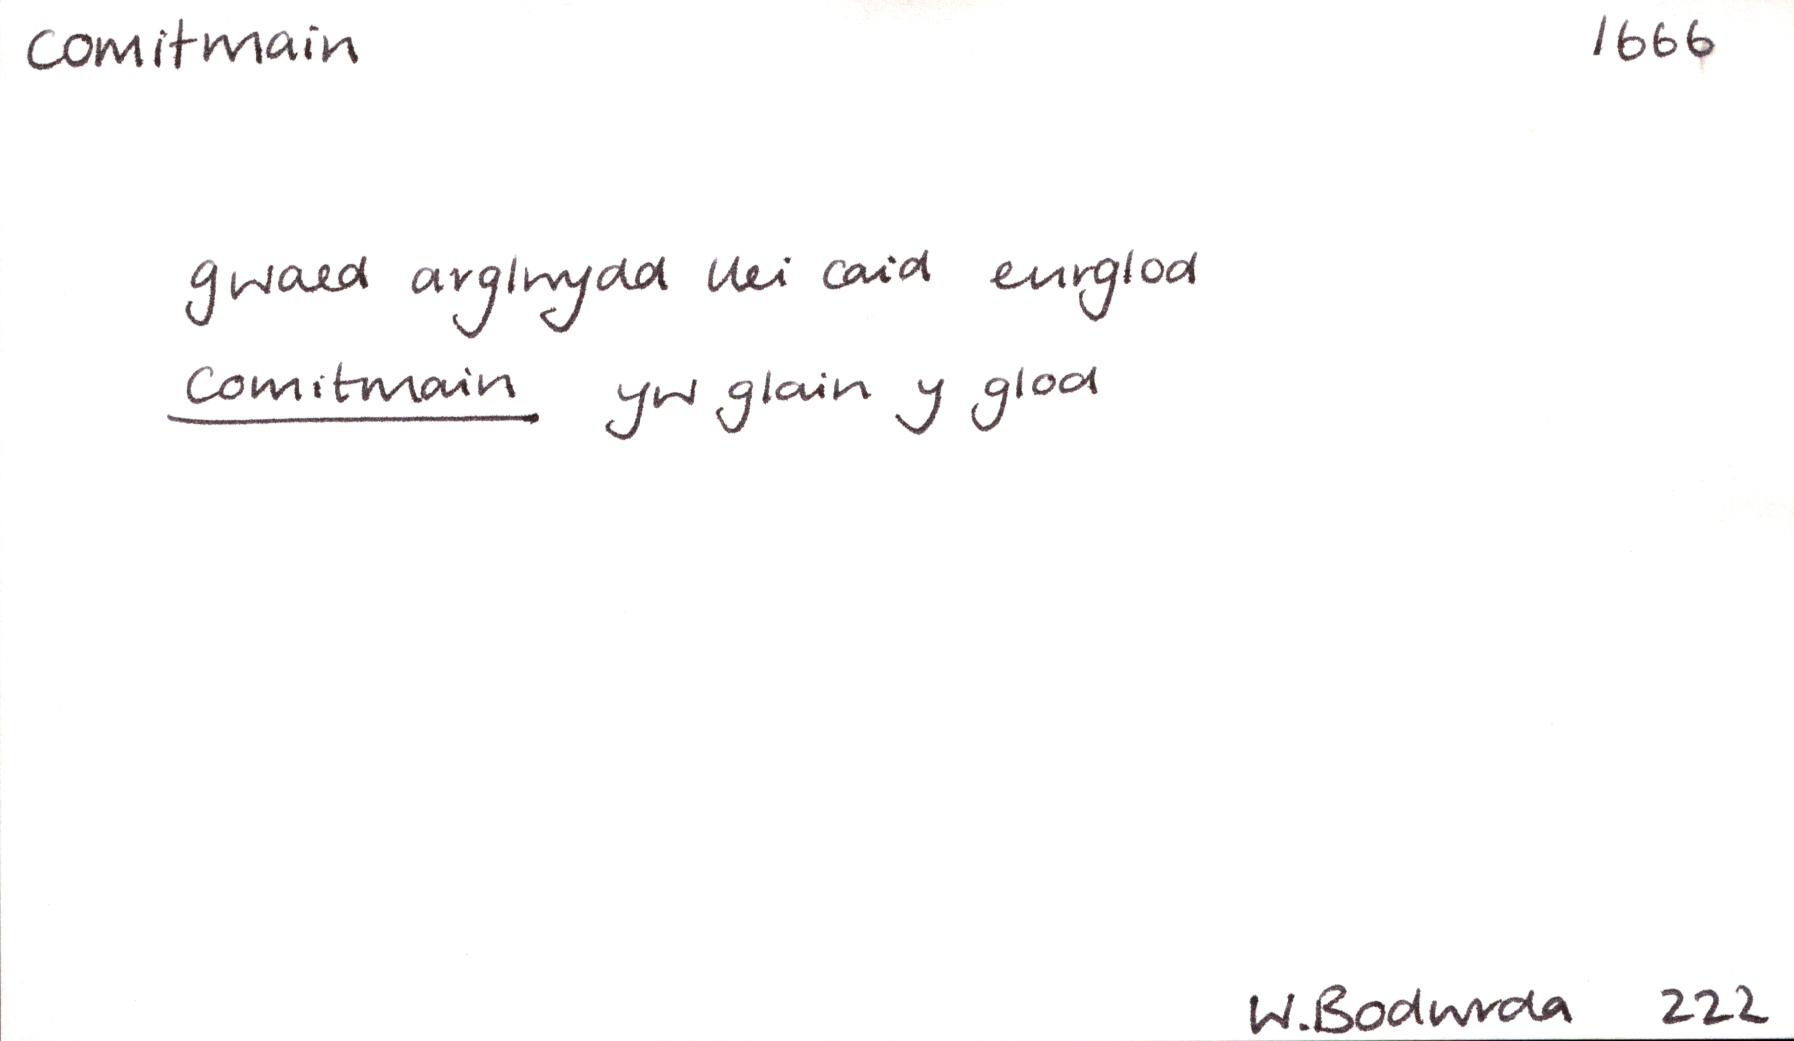 comitmain 1666
gwaed arglwydd llei caid eurglod
comitmain yw glain y glod
W. Bodwrda 222